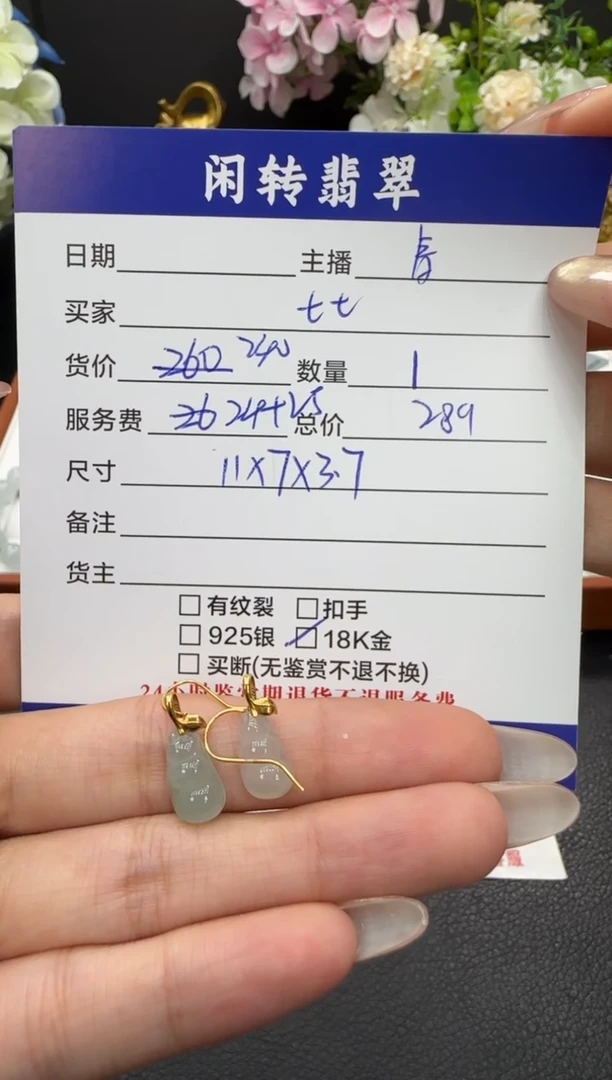 闲转翡翠
日期 主播 春
买家 七七
货价 260 240 数量 1
服务费 26 24+25 总价 289
尺寸 11X7X3.7
备注
货主
□有纹裂 □扣手
□925银 □18K金
□买断(无鉴赏不退不换)
24小时鉴赏期退货不退服务费